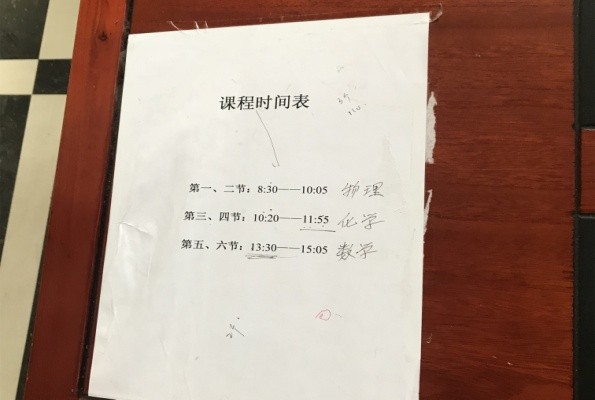 课程时间表
第一、二节：8:30——10:05 物理
第三、四节：10:20——11:55 化学
第五、六节：13:30——15:05 数学